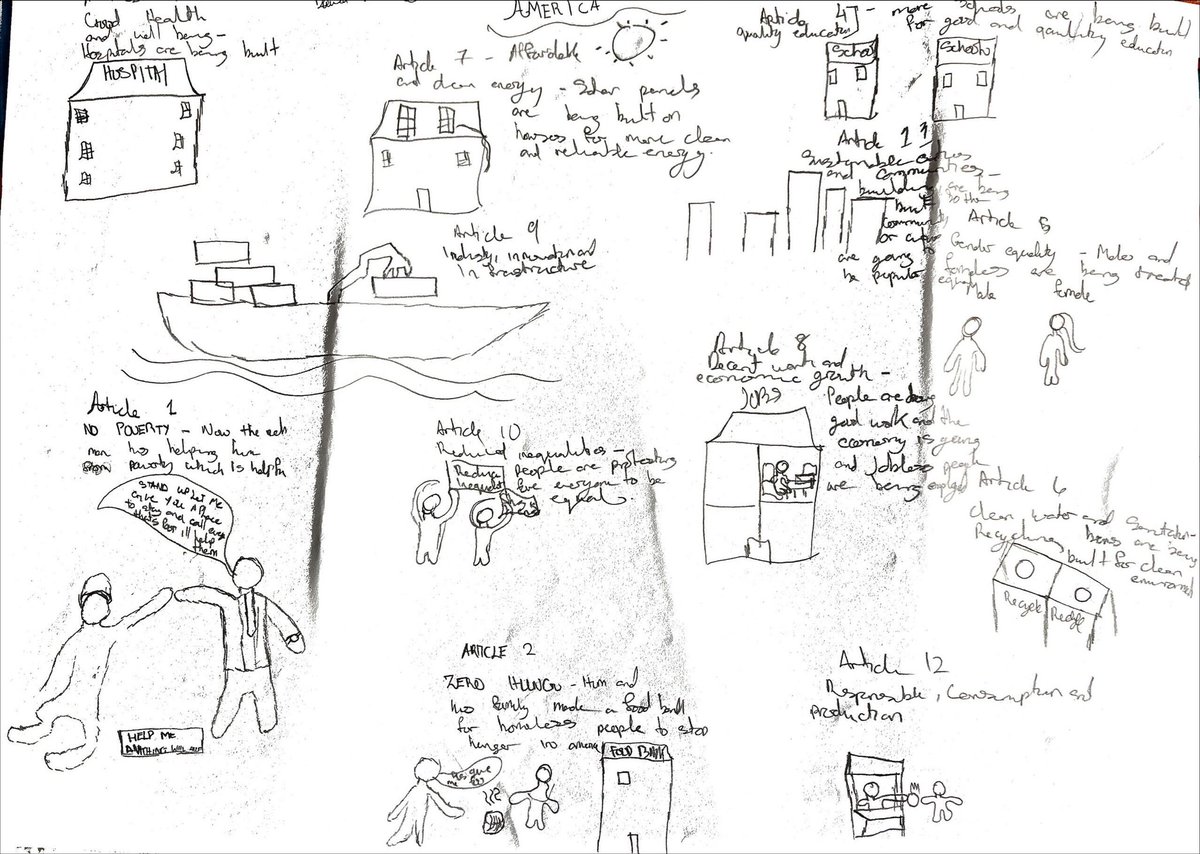 Good Health
and well being -
Hospitals are being built
HOSPITAL
AMERICA
Article 7 - Affordable
and clean energy - Solar panels
are being built on
houses for more clean
and reliable energy.
Article 4 - more schools are being built
quality education for good and quality education
School
School
Article 13
Sustainable cities
and communities -
buildings are being
built
community
are going to
be popular
Article 5
Gender equality - Males and
females are being treated
equal
Male
female
Article 9
Industry, innovation and
Infrastructure
Article 8
Decent work and
economic growth -
JOBS
People are doing
good work and the
economy is going
and Jobless people
are being employed
Article 1
NO POVERTY - Now the rich
man is helping him
poverty which is helpful
STAND UP LET ME
GIVE YOU A PLACE
to stay and call
them
HELP ME
Article 10
Reduced inequalities -
People are protesting
for everyone to be
equal.
Reduce
Article 6
Clean water and Sanitation -
Recycling bins are being
built for clean
environment
Recycle
Recycle
ARTICLE 2
ZERO HUNGU - Him and
his family made a food bank
for homeless people to stop
hunger in america
FOOD BANK
give
me
Article 12
Responsible, Consumption and
production